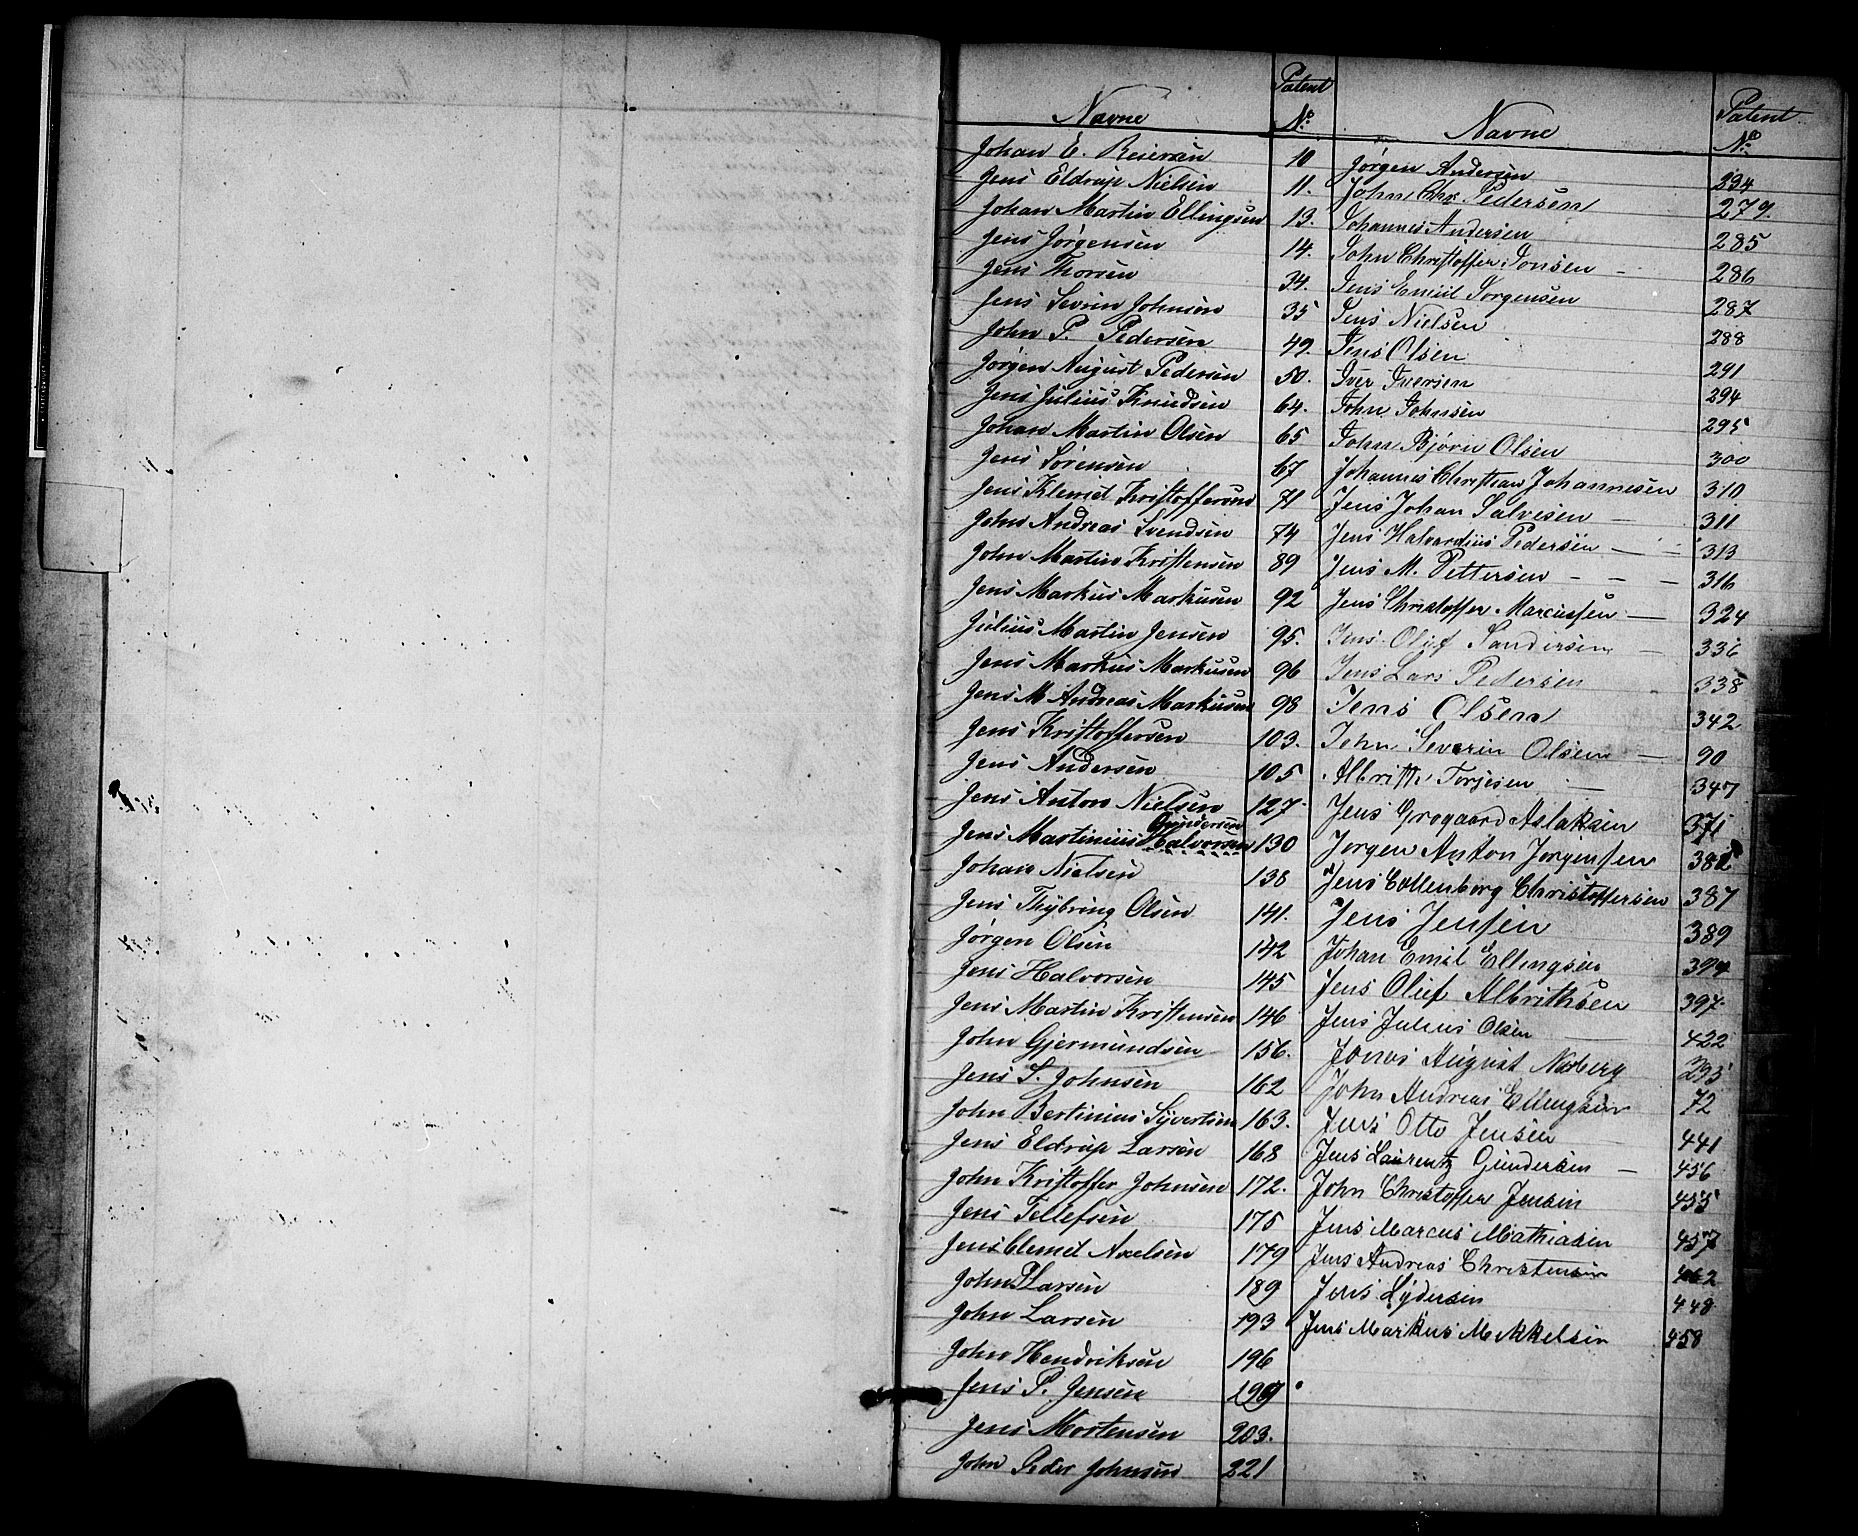 Navne Patent No.
Johan E. Reiersen 10
Jens Eldrup Nielsen 11.
Johan Martin Ellingsen 13.
Jens Jørgensen 14.
Jens Thorsen 34.
Jens Severin Johnsen 35
John P. Pedersen 49.
Jørgen August Pedersen 50.
Jens Julius Knudsen 64.
Johan Martin Olsen 65
Jens Sørensen 67
Jens Klemet Kristoffersen 71
John Andreas Svendsen 74
John Martin Kristensen 89
Jens Markus Markusen 92
Julius Martin Jensen 95.
Jens Markus Markusen 96
Jens M Andreas Markusen 98
Jens Kristoffersen 103.
Jens Andersen 105
Jens Anton Nielsen 127.
Gundersen
Jens Martinius Halvorsen 130
Johan Nielsen 138
Jens Thybring Olsen 141.
Jørgen Olsen 142
Jens Halvorsen 145
Jens Martin Kristensen 146
John Gjermundsen 156.
Jens S. Johnsen 162
John Bertinius Syvertsen 163.
Jens Eldrup Larsen 168
John Kristoffer Johnsen 172.
Jens Tellefsen 175
Jens Clemet Axelsen 179
John P Larsen 189
John Larsen 193
John Hendriksen 196
Jens P. Jensen
Jens Mortensen 203.
John Peder Johnsen 221
Navne Patent No.
Jørgen Andersen 234
John Chr. Pedersen 279.
Johannes Andersen 285
John Christoffer Jonsen - 286
Jens Emil Jørgensen 287
Jens Nielsen 288
Jens Olsen 291
Iver Iversen 294
John Johnsen 295
John Bjørn Olsen 300
Johannes Christian Johannesen 310
Jens Johan Salvesen - 311
Jens Halvardius Pedersen - - 313
Jens M. Pettersen - - - 316
Jens Christoffer Marcussen - 324
Jens Oluf Sandersen - 336
Jens Lars Pedersen 338
Jens Olsen 342
John Severin Olsen - 90
Albrith Torjesen - 347
Jens Grogaard Aslaksen 371
Jørgen Anton Jørgensen 382
Jens Collenborg Christoffersen 387
Jens Jensen 389
Johan Emil Ellingsen 394
Jens Oluf Albrithsen 397
Jens Julius Olsen 422
Jonas August Norberg 295
John Andreas Ellingsen 72
Jens Otto Jensen 441
Jens Laurentz Gundersen - 456
John Christoffer Jensen 455
Jens Marcus Mathiasen 457
Jens Andreas Christensen 462
Jens Lydersen 448
Jens Markus Mikkelsen 458